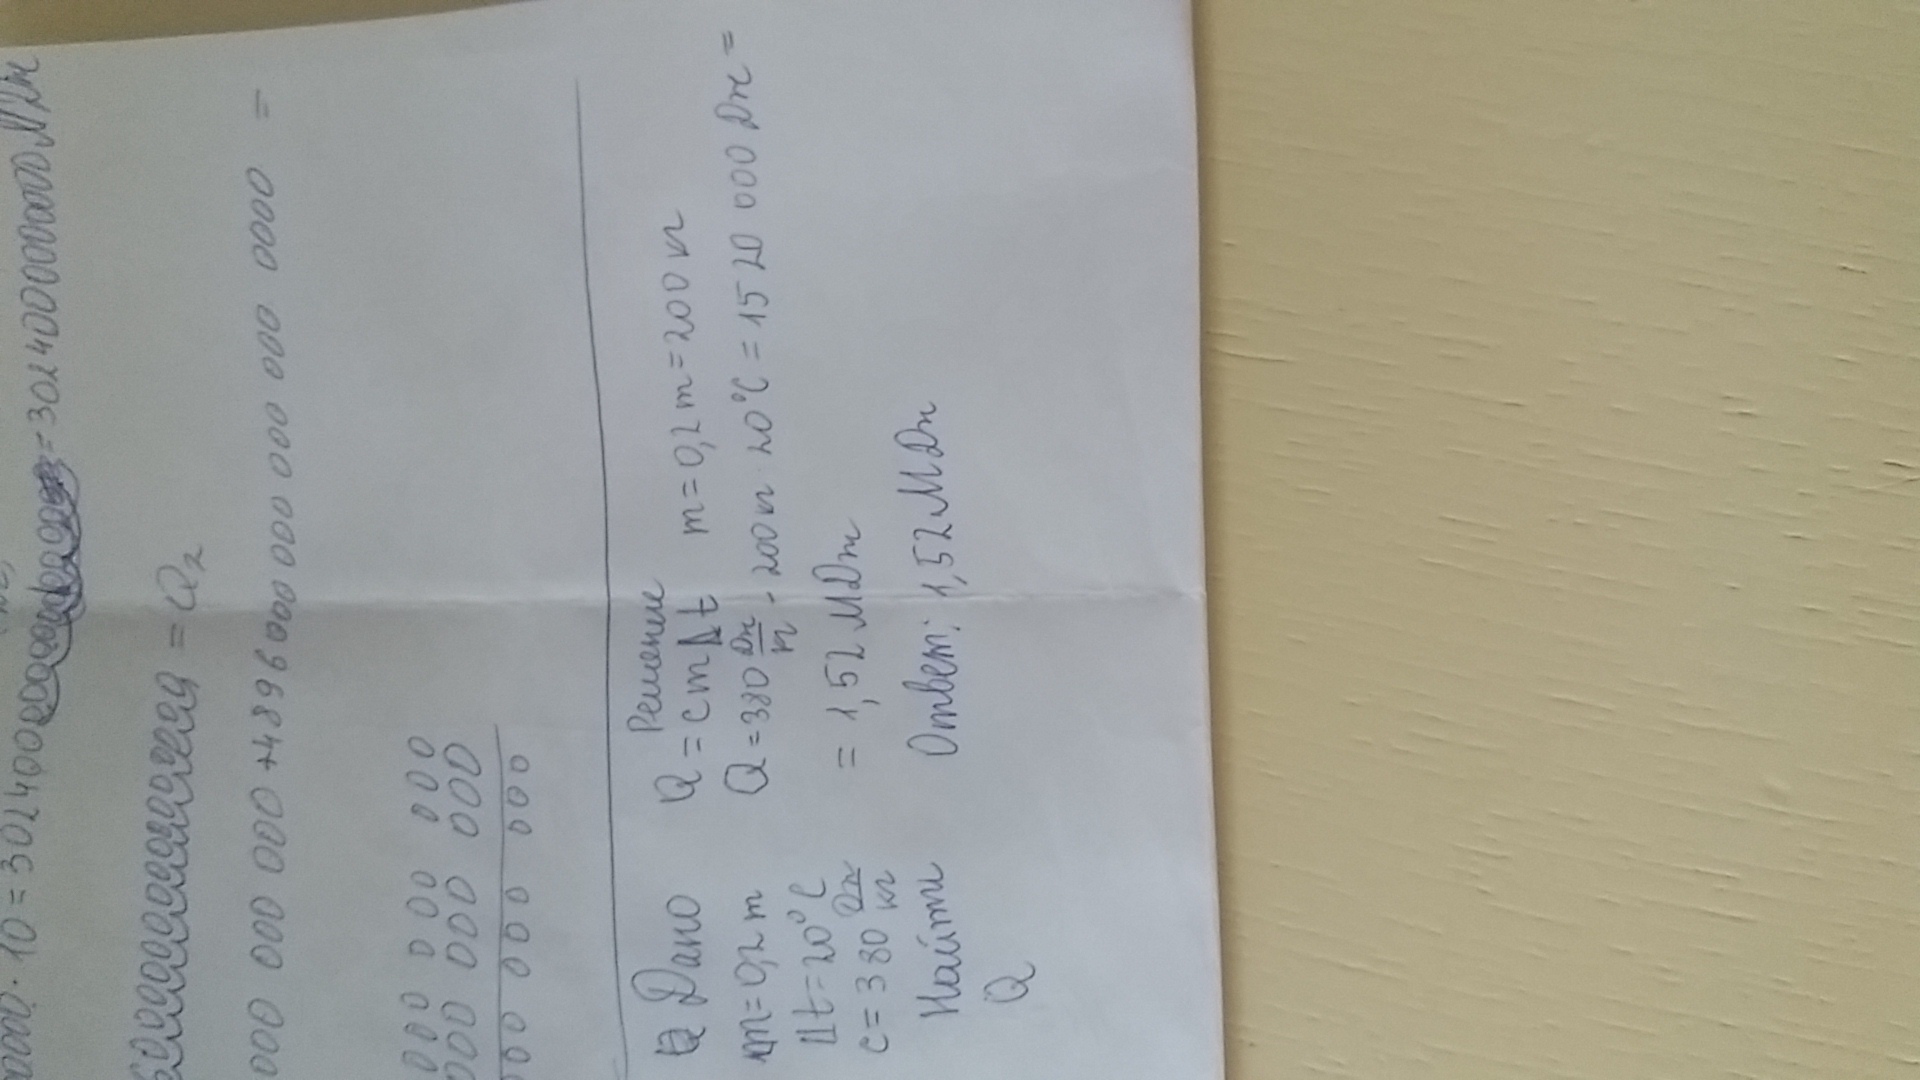 0000 · 10 = 302400 = 302400000000 МДж
= Q₂
000 000 000 000 + 4896 000 000 000 000 000 0000 =
000 000 000
000 000 000 000
00 000 000 000
Дано
m = 0,2 т
Δt = 20°C
c = 380 Дж/кг
Найти
Q
Решение
Q = cmΔt m = 0,2 т = 200 кг
Q = 380 Дж/кг · 200 кг · 20°C = 1520 000 Дж =
= 1,52 МДж
Ответ: 1,52 МДж